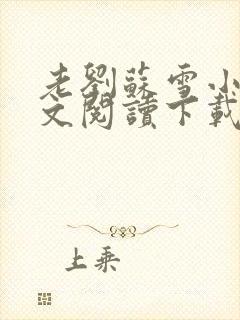 老劉蘇雪小
文閱讀下載
上乘